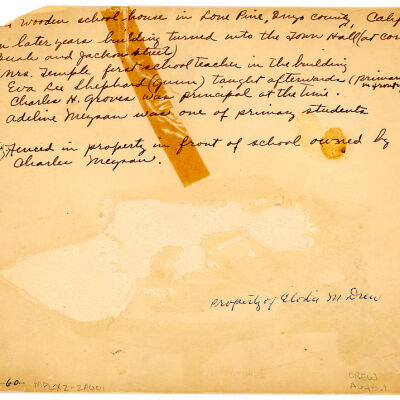 wooden school house in Lone Pine, Inyo County, Calif
n later years building turned into the Town Hall (at cor
and Jackson Street)
Mrs. Temple first school teacher in the building
Eva Lee Shephard (Gunn) taught afterwards (primar
in front
Charles H. Groves was principal at the time.
Adeline Meysan was one of primary students
Fenced in property in front of school owned by
Charles Meysan.
Property of Elodie M. Drew
60
DREW
A64B.1